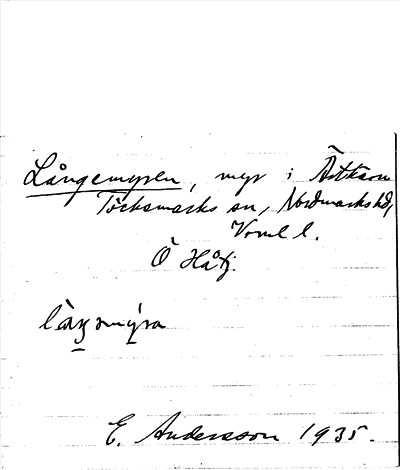 Långemyren, myr i Östkärn
Töcksmarks sn, Nordmarks hd,
Verml l.
Ö Håtj.
làŋəmy̌ra
E. Andersson 1935.